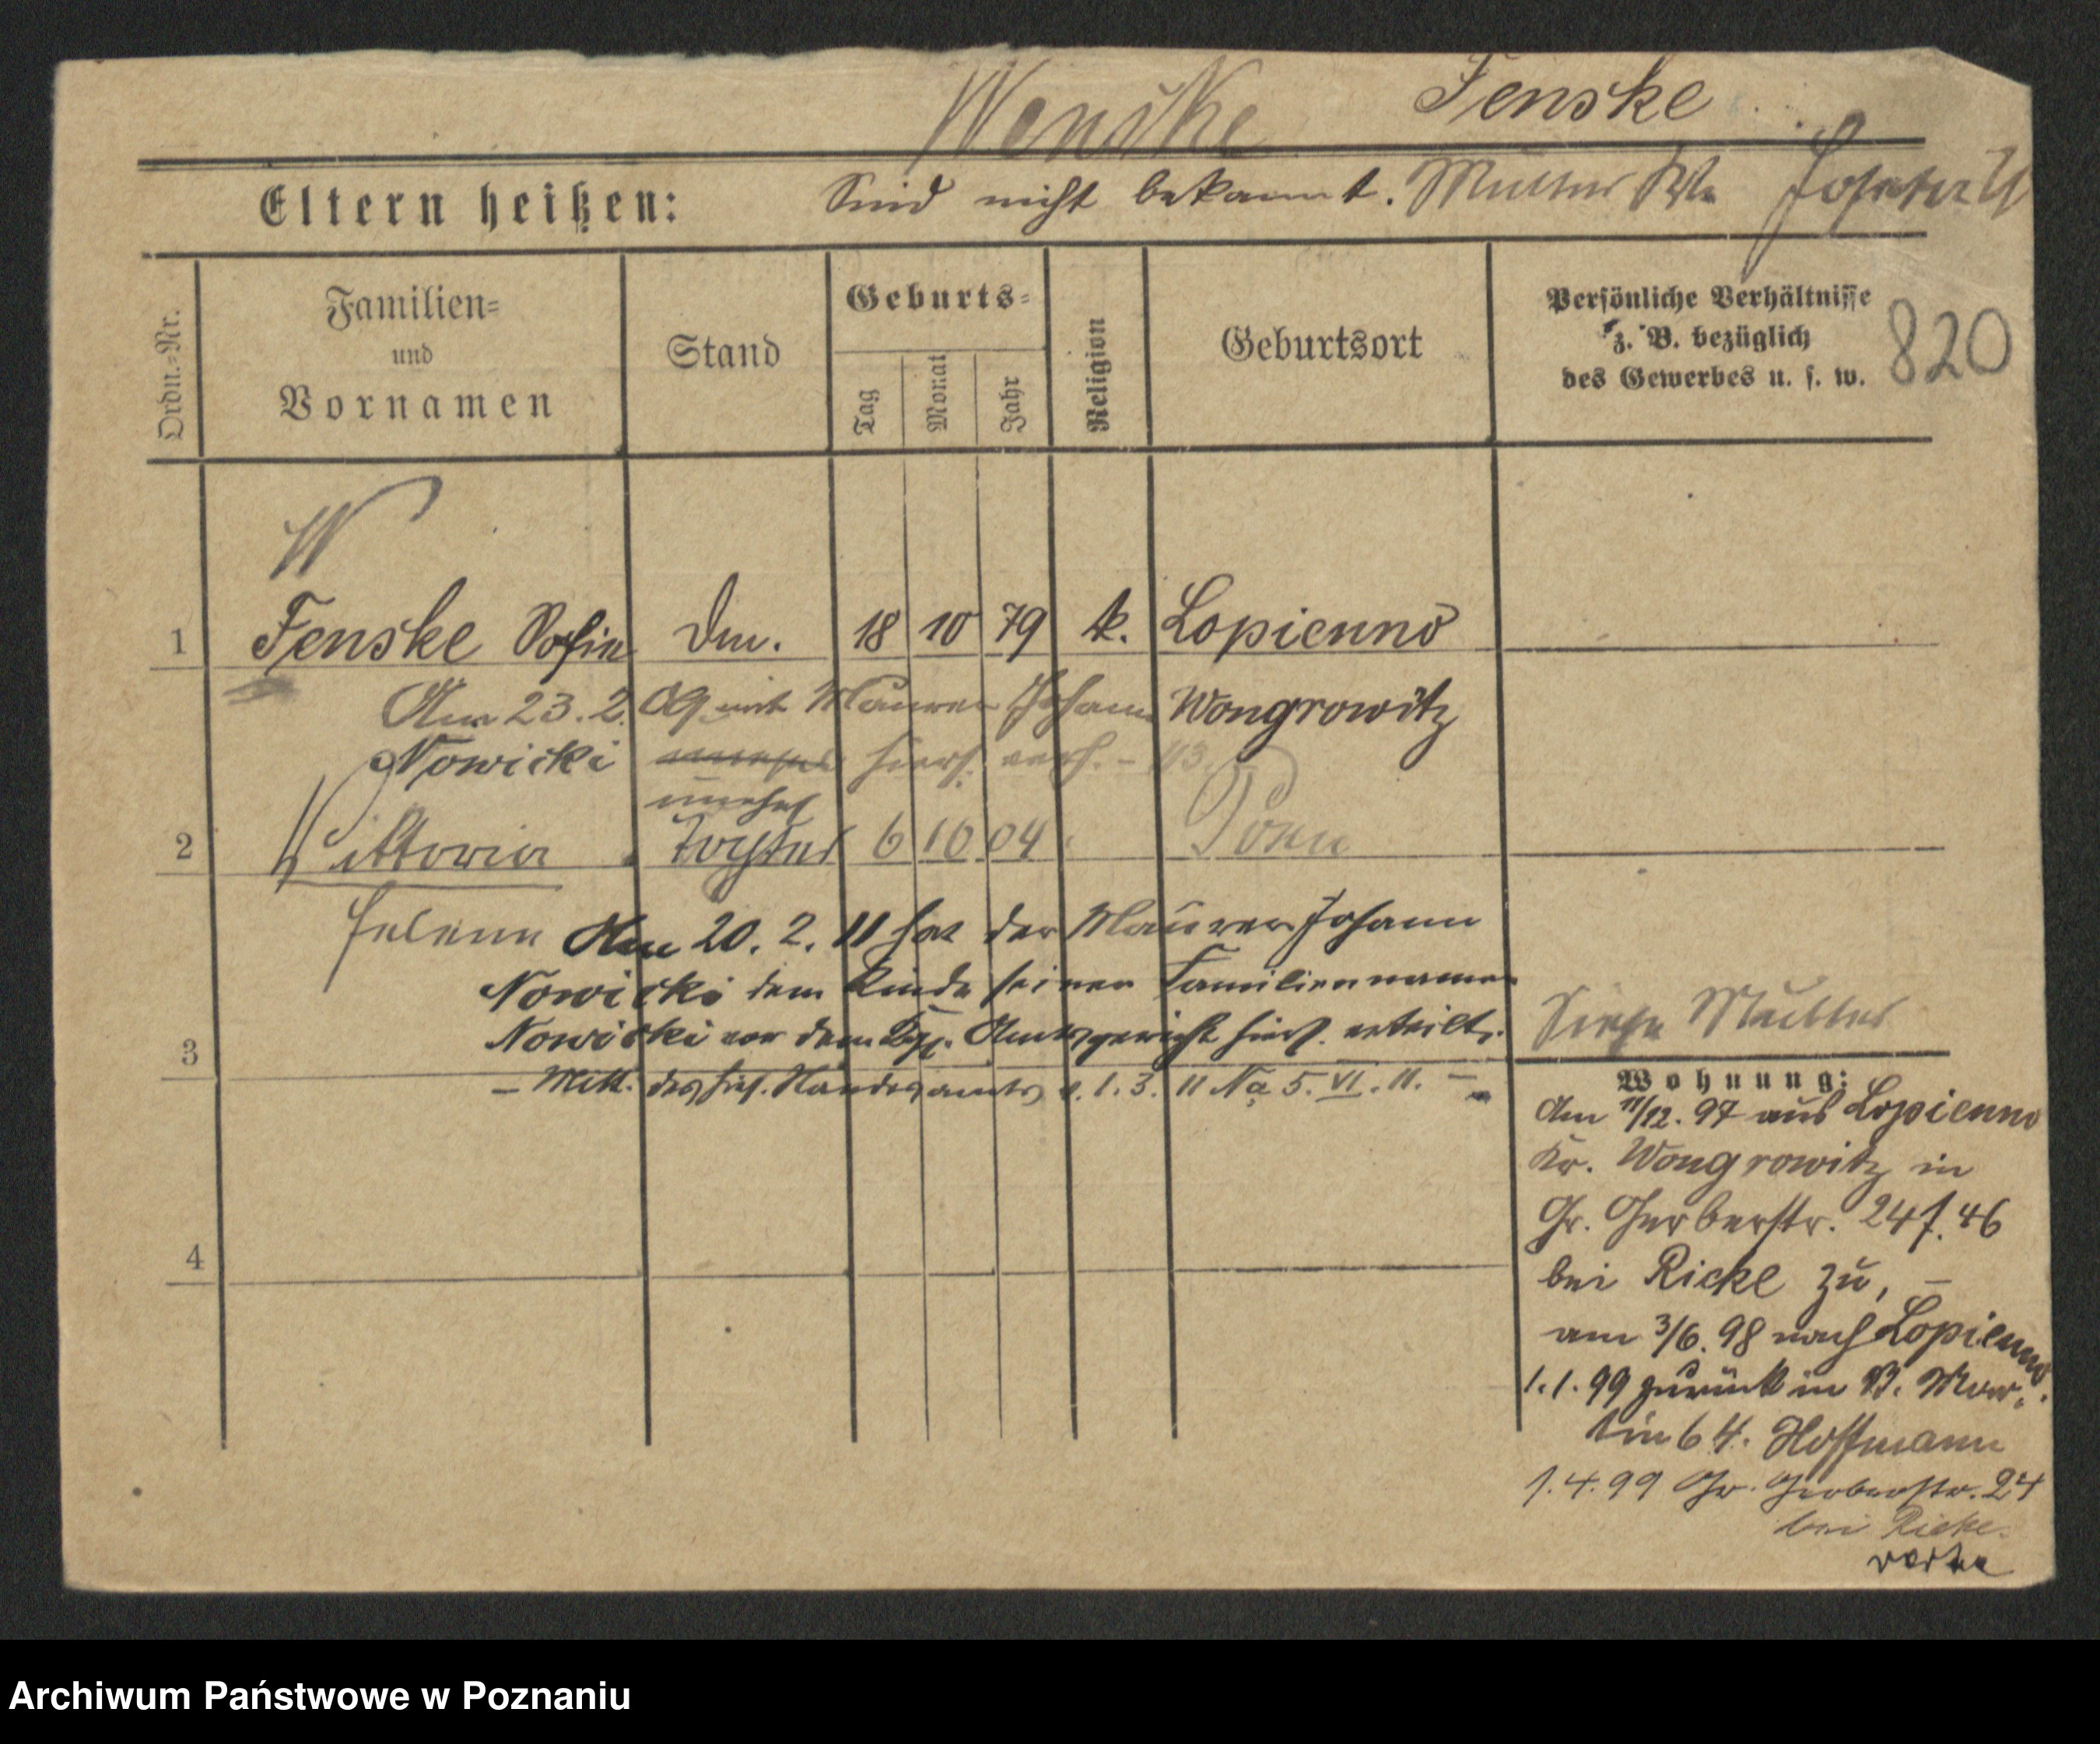 Wenske Fenske
Eltern heißen: Sind nicht bekannt. Mutter Ww
Ordn.=Nr.
Familien=
und
Vornamen
Stand
Geburts=
Tag
Monat
Jahr
Religion
Geburtsort
Persönliche Verhältnisse
z. B. bezüglich
des Gewerbes u. s. w.
820
W
1 Fenske Sofie Dm. 18 10 79 k. Lopienno
Am 23.2. 09 mit Maurer Johann Wongrowitz
Nowicki hiers. verh. –
unehel
2 Viktoria Tochter 6 10 04 Posen
Helene Am 20. 2. 11 hat der Maurer Johann
Nowicki dem Kinde seinen Familiennamen
Nowicki vor dem Kgl. Amtsgericht hiers. erteilt.
3 – Mitt. des hies. Standesamts v. 1. 3. 11 No 5. VI. 11. –
Siehe Mutter
4
Wohnung:
Am 11/12. 97 aus Lopienno
Kr. Wongrowitz in
Gr. Gerberstr. 24 f. 46
bei Ricke zu, –
am 3/6. 98 nach Lopienno.
1. 1. 99 zurück in St. Mar-
tin 64. Hoffmann
1. 4. 99 Gr. Gerberstr. 24
bei Ricke.
Archiwum Państwowe w Poznaniu